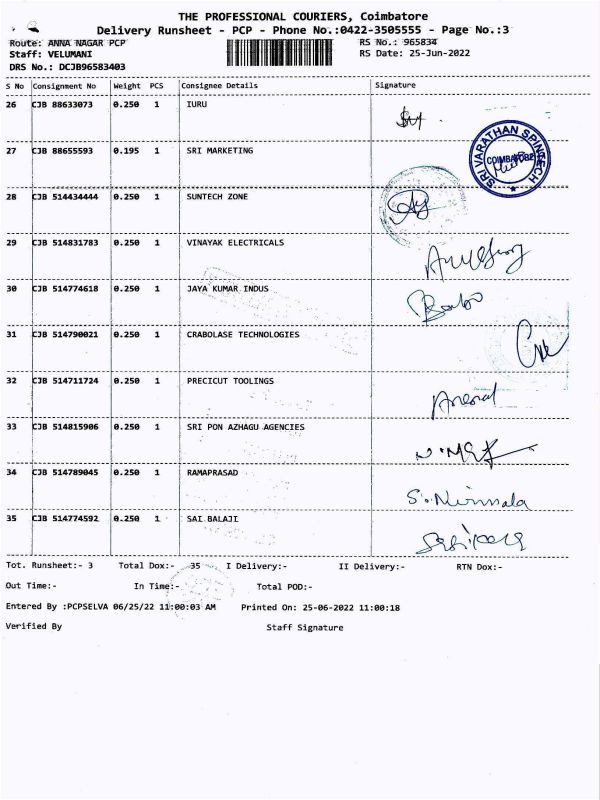 THE PROFESSIONAL COURIERS, Coimbatore
Delivery Runsheet - PCP - Phone No.:0422-3505555 - Page No.:3
Route: ANNA NAGAR PCP RS No.: 965834
Staff: VELUMANI RS Date: 25-Jun-2022
DRS No.: DCJB96583403
S No Consignment No Weight PCS Consignee Details Signature
26 CJB 88633073 0.250 1 IURU
27 CJB 88655593 0.195 1 SRI MARKETING
SRI VARATHAN SPINTECH
COIMBATORE
28 CJB 514434444 0.250 1 SUNTECH ZONE
29 CJB 514831783 0.250 1 VINAYAK ELECTRICALS
30 CJB 514774618 0.250 1 JAYA KUMAR INDUS
31 CJB 514790021 0.250 1 CRABOLASE TECHNOLOGIES
32 CJB 514711724 0.250 1 PRECICUT TOOLINGS
33 CJB 514815906 0.250 1 SRI PON AZHAGU AGENCIES
34 CJB 514789045 0.250 1 RAMAPRASAD S. Nirmala
35 CJB 514774592 0.250 1 SAI BALAJI
Tot. Runsheet:- 3 Total Dox:- 35 I Delivery:- II Delivery:- RTN Dox:-
Out Time:- In Time:- Total POD:-
Entered By :PCPSELVA 06/25/22 11:00:03 AM Printed On: 25-06-2022 11:00:18
Verified By Staff Signature